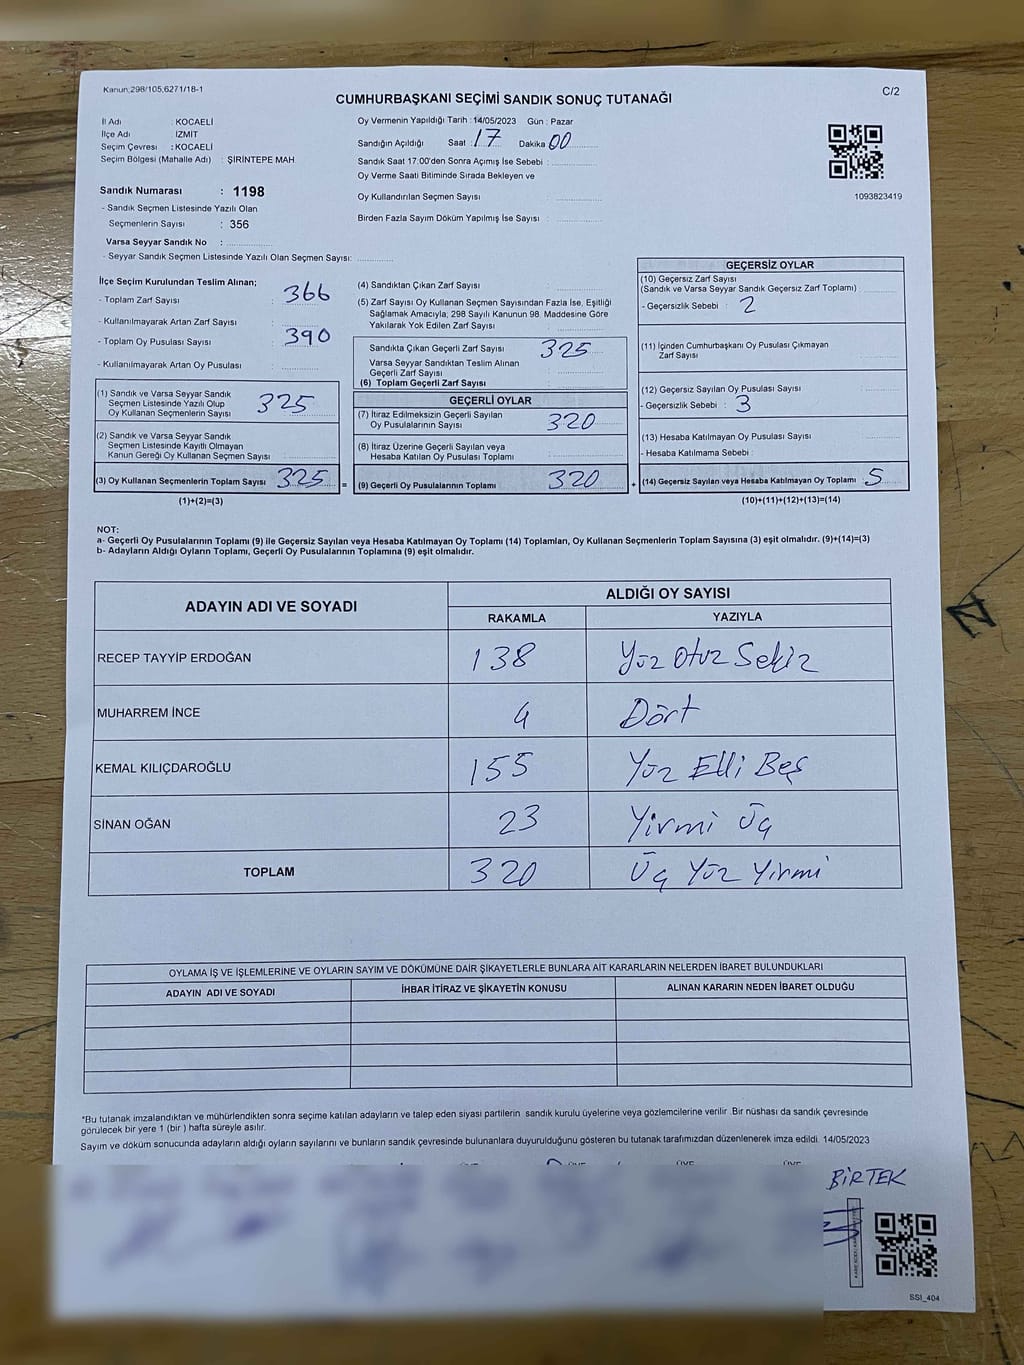 Kanun,298/105,6271/18-1
C/2
CUMHURBAŞKANI SEÇİMİ SANDIK SONUÇ TUTANAĞI
İl Adı : KOCAELİ
İlçe Adı : İZMİT
Seçim Çevresi : KOCAELİ
Seçim Bölgesi (Mahalle Adı) : ŞİRİNTEPE MAH
Sandık Numarası : 1198
- Sandık Seçmen Listesinde Yazılı Olan
Seçmenlerin Sayısı : 356
Varsa Seyyar Sandık No :
- Seyyar Sandık Seçmen Listesinde Yazılı Olan Seçmen Sayısı:
Oy Vermenin Yapıldığı Tarih : 14/05/2023 Gün : Pazar
Sandığın Açıldığı Saat : 17 Dakika 00
Sandık Saat 17:00'den Sonra Açımış İse Sebebi :
Oy Verme Saati Bitiminde Sırada Bekleyen ve
Oy Kullandırılan Seçmen Sayısı :
Birden Fazla Sayım Döküm Yapılmış İse Sayısı :
1093823419
İlçe Seçim Kurulundan Teslim Alınan;
- Toplam Zarf Sayısı : 366
- Kullanılmayarak Artan Zarf Sayısı :
- Toplam Oy Pusulası Sayısı : 390
- Kullanılmayarak Artan Oy Pusulası :
(1) Sandık ve Varsa Seyyar Sandık
Seçmen Listesinde Yazılı Olup
Oy Kullanan Seçmenlerin Sayısı : 325
(2) Sandık ve Varsa Seyyar Sandık
Seçmen Listesinde Kayıtlı Olmayan
Kanun Gereği Oy Kullanan Seçmen Sayısı :
(3) Oy Kullanan Seçmenlerin Toplam Sayısı : 325
(1)+(2)=(3)
(4) Sandıktan Çıkan Zarf Sayısı :
(5) Zarf Sayısı Oy Kullanan Seçmen Sayısından Fazla İse, Eşitliği
Sağlamak Amacıyla, 298 Sayılı Kanunun 98. Maddesine Göre
Yakılarak Yok Edilen Zarf Sayısı :
Sandıkta Çıkan Geçerli Zarf Sayısı : 325
Varsa Seyyar Sandıktan Teslim Alınan
Geçerli Zarf Sayısı :
(6) Toplam Geçerli Zarf Sayısı :
GEÇERLİ OYLAR
(7) İtiraz Edilmeksizin Geçerli Sayılan
Oy Pusulalarının Sayısı : 320
(8) İtiraz Üzerine Geçerli Sayılan veya
Hesaba Katılan Oy Pusulası Toplamı :
(9) Geçerli Oy Pusulalarının Toplamı : 320
=
+
GEÇERSİZ OYLAR
(10) Geçersiz Zarf Sayısı
(Sandık ve Varsa Seyyar Sandık Geçersiz Zarf Toplamı) :
- Geçersizlik Sebebi : 2
(11) İçinden Cumhurbaşkanı Oy Pusulası Çıkmayan
Zarf Sayısı :
(12) Geçersiz Sayılan Oy Pusulası Sayısı :
- Geçersizlik Sebebi : 3
(13) Hesaba Katılmayan Oy Pusulası Sayısı :
- Hesaba Katılmama Sebebi :
(14) Geçersiz Sayılan veya Hesaba Katılmayan Oy Toplamı : 5
(10)+(11)+(12)+(13)=(14)
NOT:
a- Geçerli Oy Pusulalarının Toplamı (9) ile Geçersiz Sayılan veya Hesaba Katılmayan Oy Toplamı (14) Toplamları, Oy Kullanan Seçmenlerin Toplam Sayısına (3) eşit olmalıdır. (9)+(14)=(3)
b- Adayların Aldığı Oyların Toplamı, Geçerli Oy Pusulalarının Toplamına (9) eşit olmalıdır.
ADAYIN ADI VE SOYADI
ALDIĞI OY SAYISI
RAKAMLA YAZIYLA
RECEP TAYYİP ERDOĞAN 138 Yüz Otuz Sekiz
MUHARREM İNCE 4 Dört
KEMAL KILIÇDAROĞLU 155 Yüz Elli Beş
SİNAN OĞAN 23 Yirmi Üç
TOPLAM 320 Üç Yüz Yirmi
OYLAMA İŞ VE İŞLEMLERİNE VE OYLARIN SAYIM VE DÖKÜMÜNE DAİR ŞİKAYETLERLE BUNLARA AİT KARARLARIN NELERDEN İBARET BULUNDUKLARI
ADAYIN ADI VE SOYADI İHBAR İTİRAZ VE ŞİKAYETİN KONUSU ALINAN KARARIN NEDEN İBARET OLDUĞU
*Bu tutanak imzalandıktan ve mühürlendikten sonra seçime katılan adayların ve talep eden siyasi partilerin sandık kurulu üyelerine veya gözlemcilerine verilir. Bir nüshası da sandık çevresinde
görülecek bir yere 1 (bir) hafta süreyle asılır.
Sayım ve döküm sonucunda adayların aldığı oyların sayılarını ve bunların sandık çevresinde bulunanlara duyurulduğunu gösteren bu tutanak tarafımızdan düzenlenerek imza edildi. 14/05/2023
BİRTEK
SSI_404